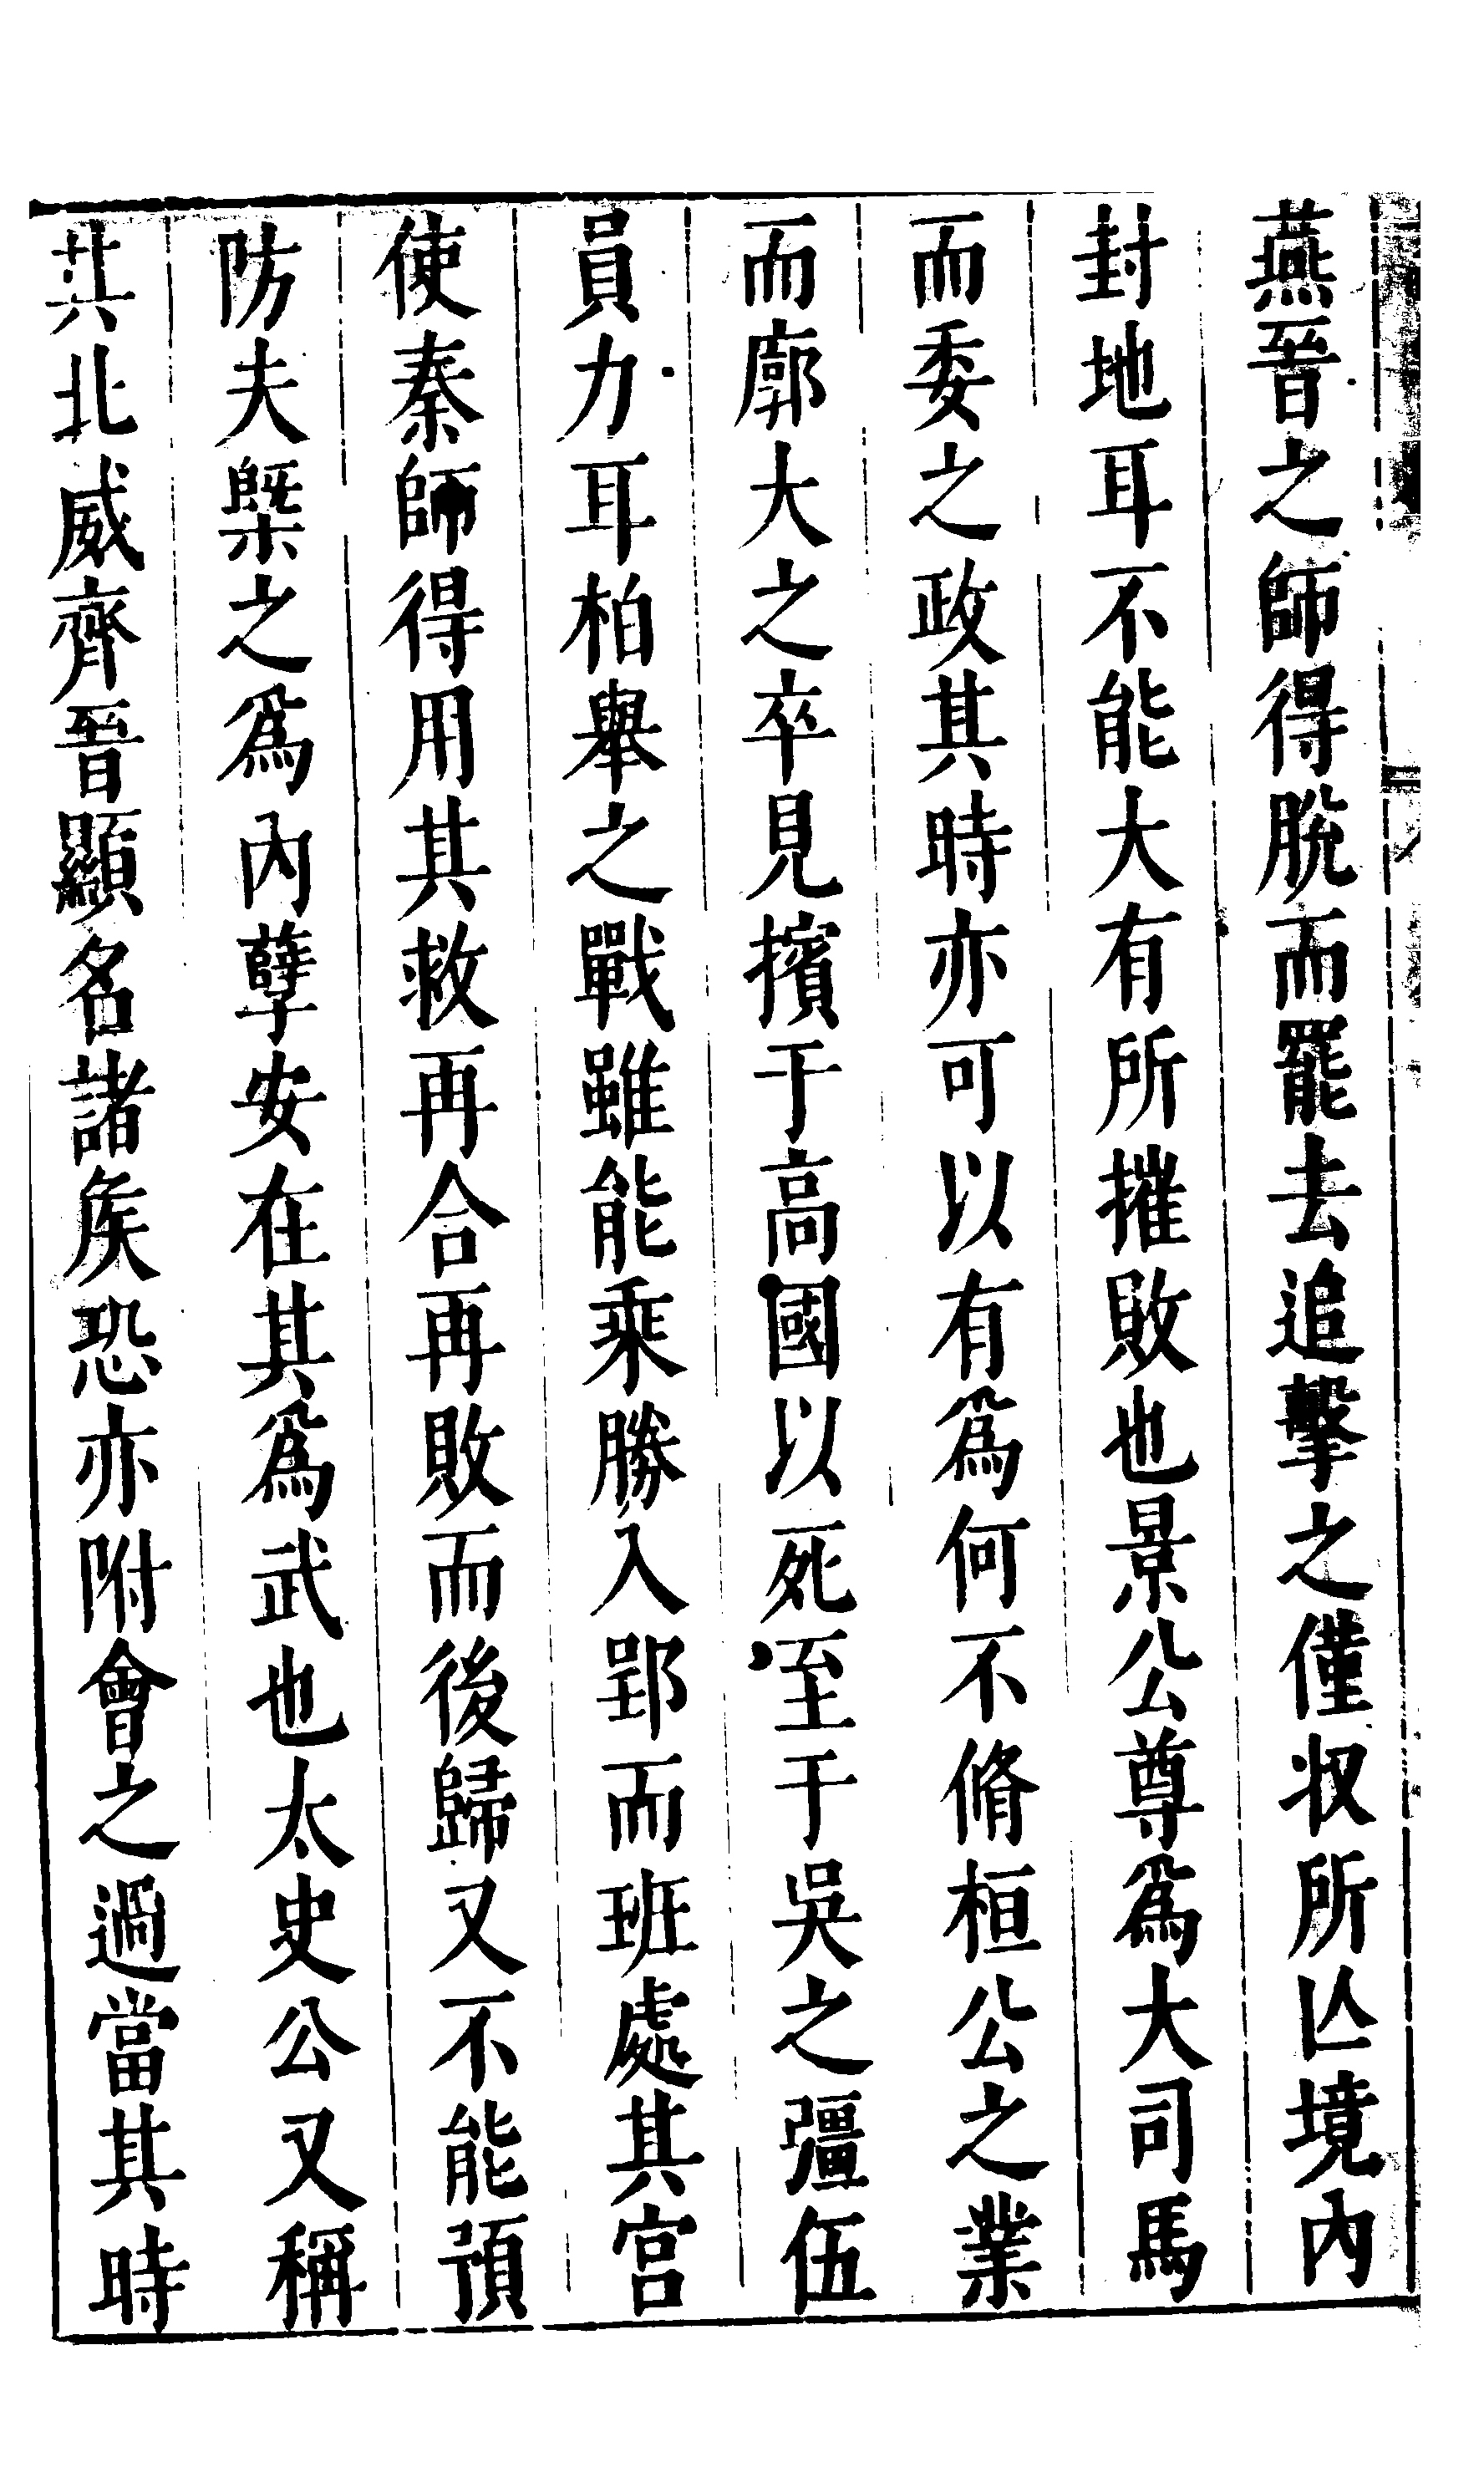 燕晉之師得脫而罷去追擊之僅収所亾境內
封地耳不能大有所摧敗也景公尊為大司馬
而委之政其時亦可以有為何不脩桓公之業
而廓大之卒見擯于高國以死至于吳之彊伍
員力耳柏舉之戰雖能乘勝入郢而班處其宮
使秦師得用其救再合再敗而後歸又不能預
防夫槩之為內孽安在其為武也太史公又稱
其北威齊晉顯名諸矦恐亦附會之過當其時